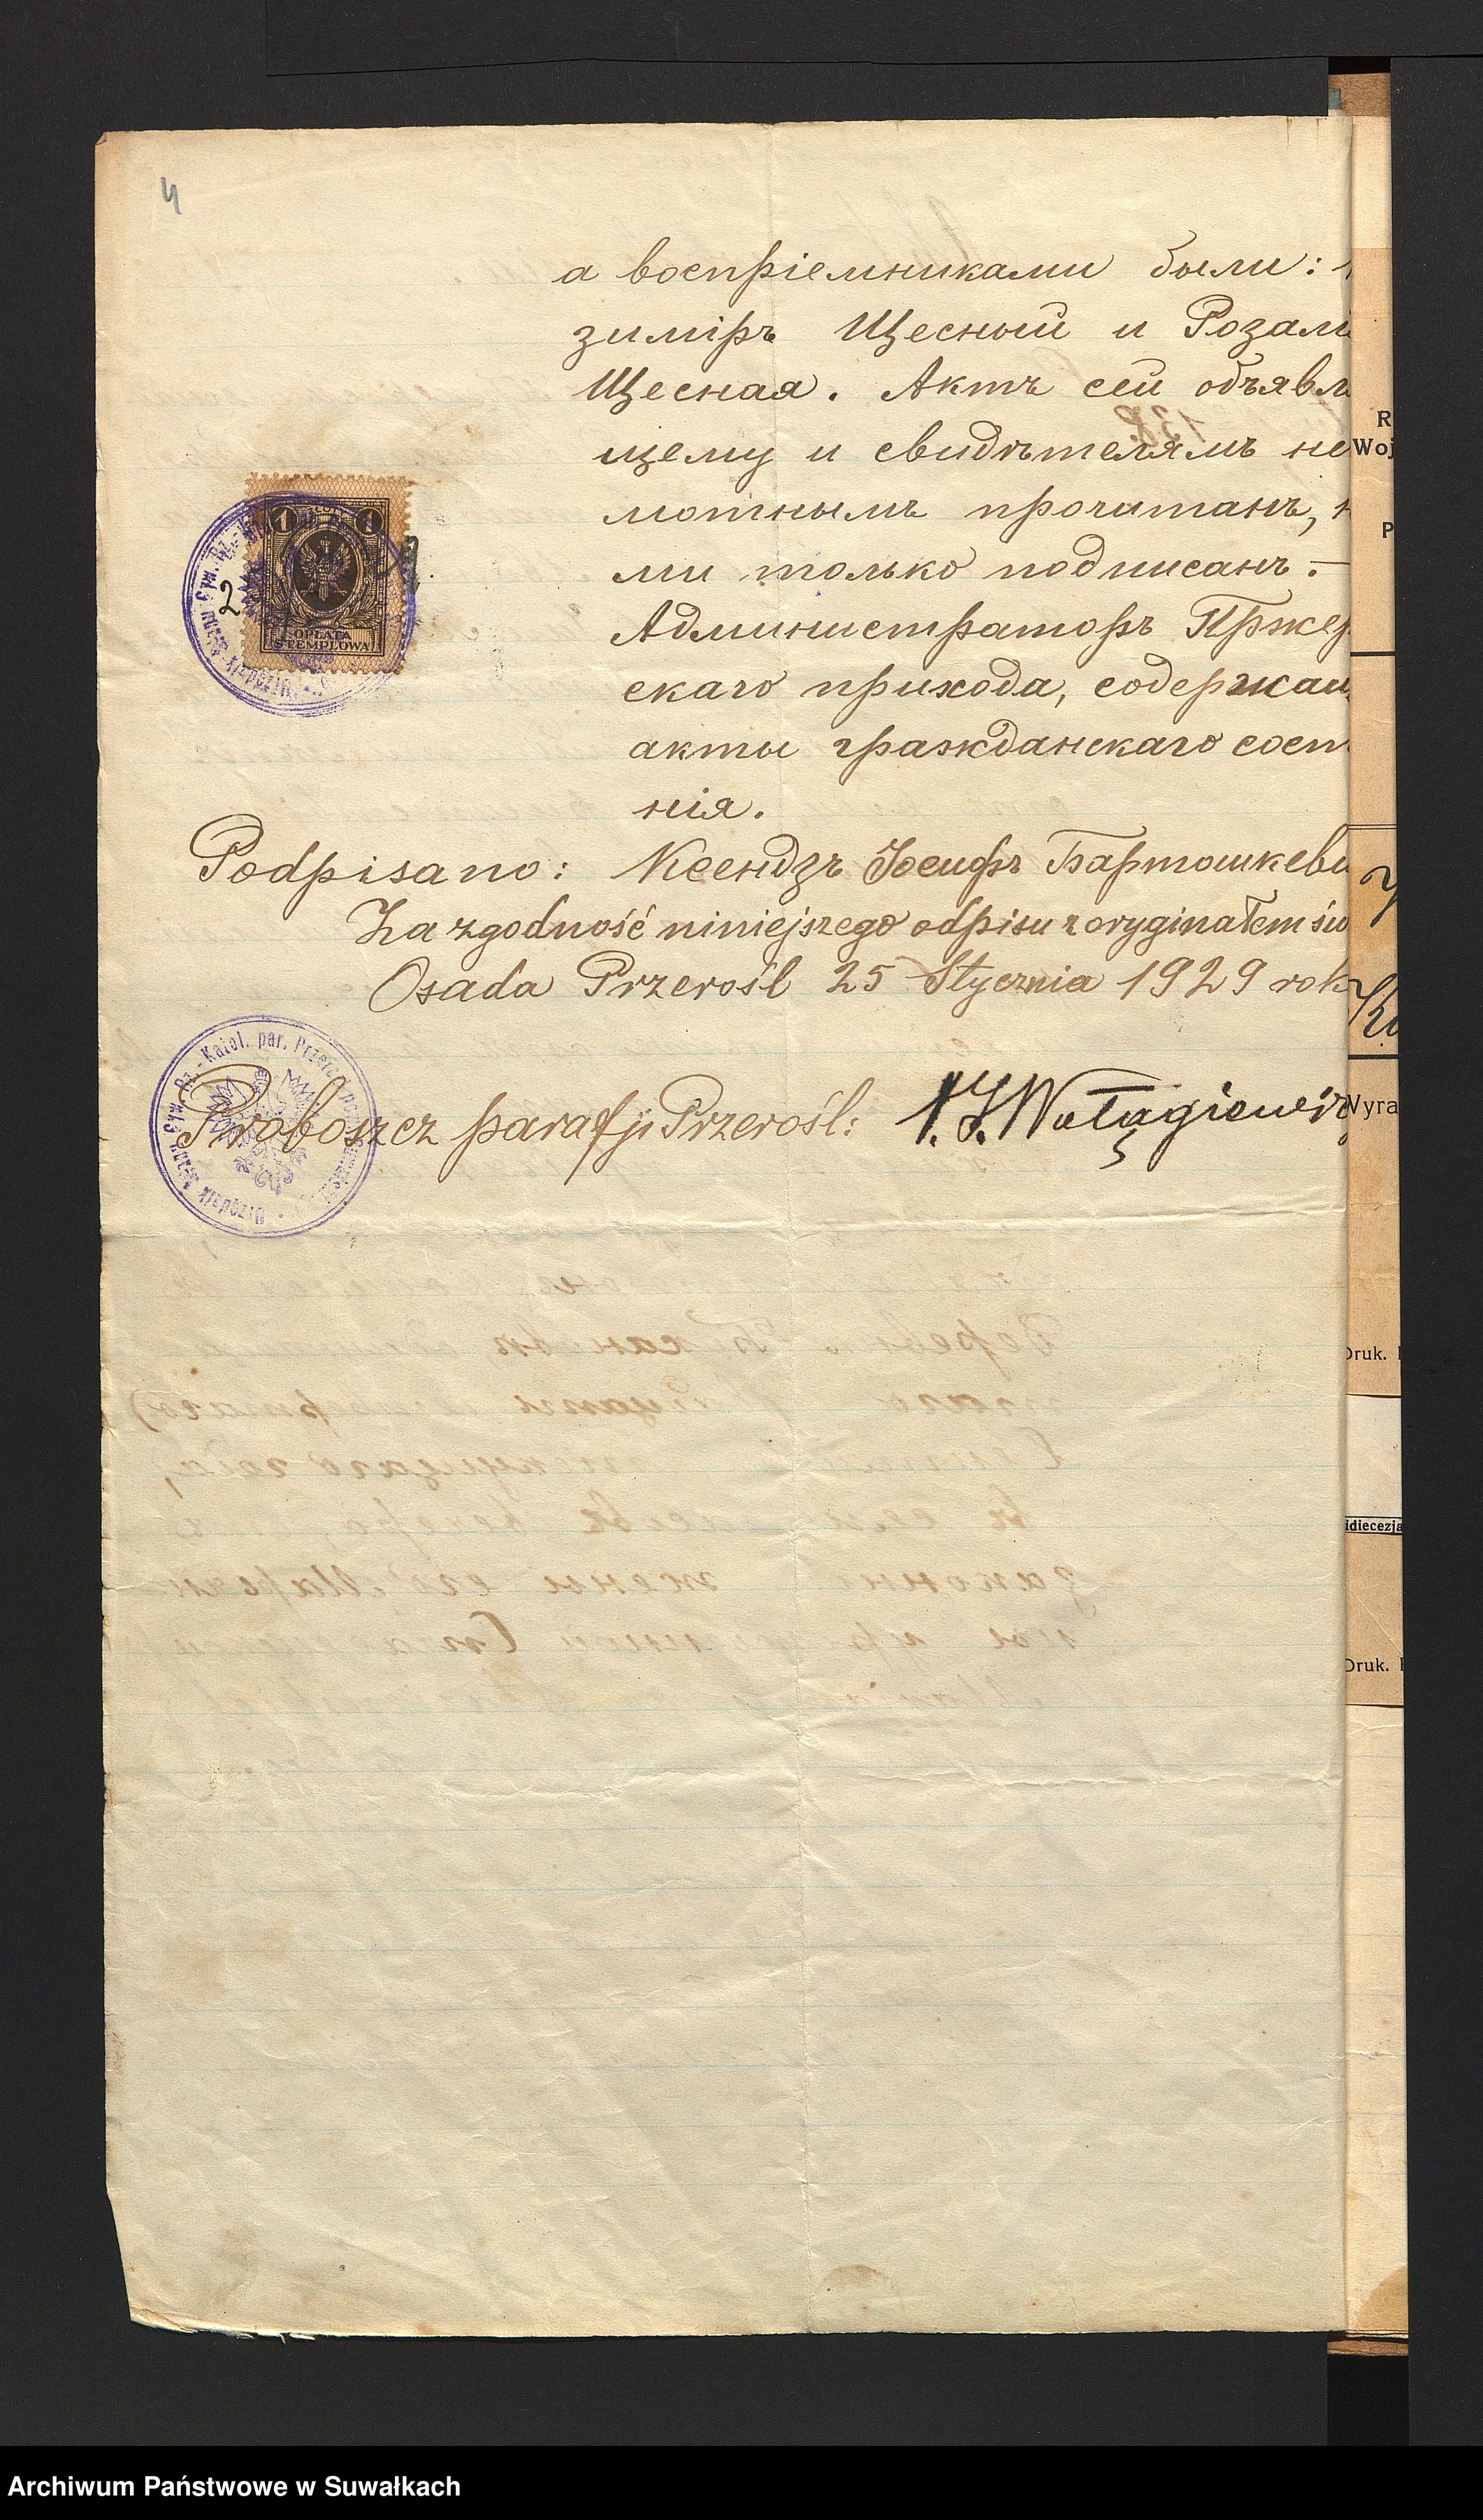 4
а воспріемниками были:
зиміръ Щесный и Розалі
Щесная. Актъ сей объявл
щему и свидѣтелямъ не
мотнымъ прочитанъ, н
ми только подписанъ.–
Администраторъ Пржер
скаго прихода, содержащ
акты гражданскаго сост
нія.
Podpisano: Ксендзъ Іосифъ Бартошкеви
Za zgodność niniejszego odpisu z oryginałem św
Osada Przerośl 25 Stycznia 1929 rok
Proboszcz parafji Przerośl:
1 1
OPŁATA
STEMPLOWA
2
Rz.-Katol. par. Przerośl
Urzędnik Stanu Cyw.
R
Woj
P
Wyra
Druk.
idiecezja
Druk.
Archiwum Państwowe w Suwałkach